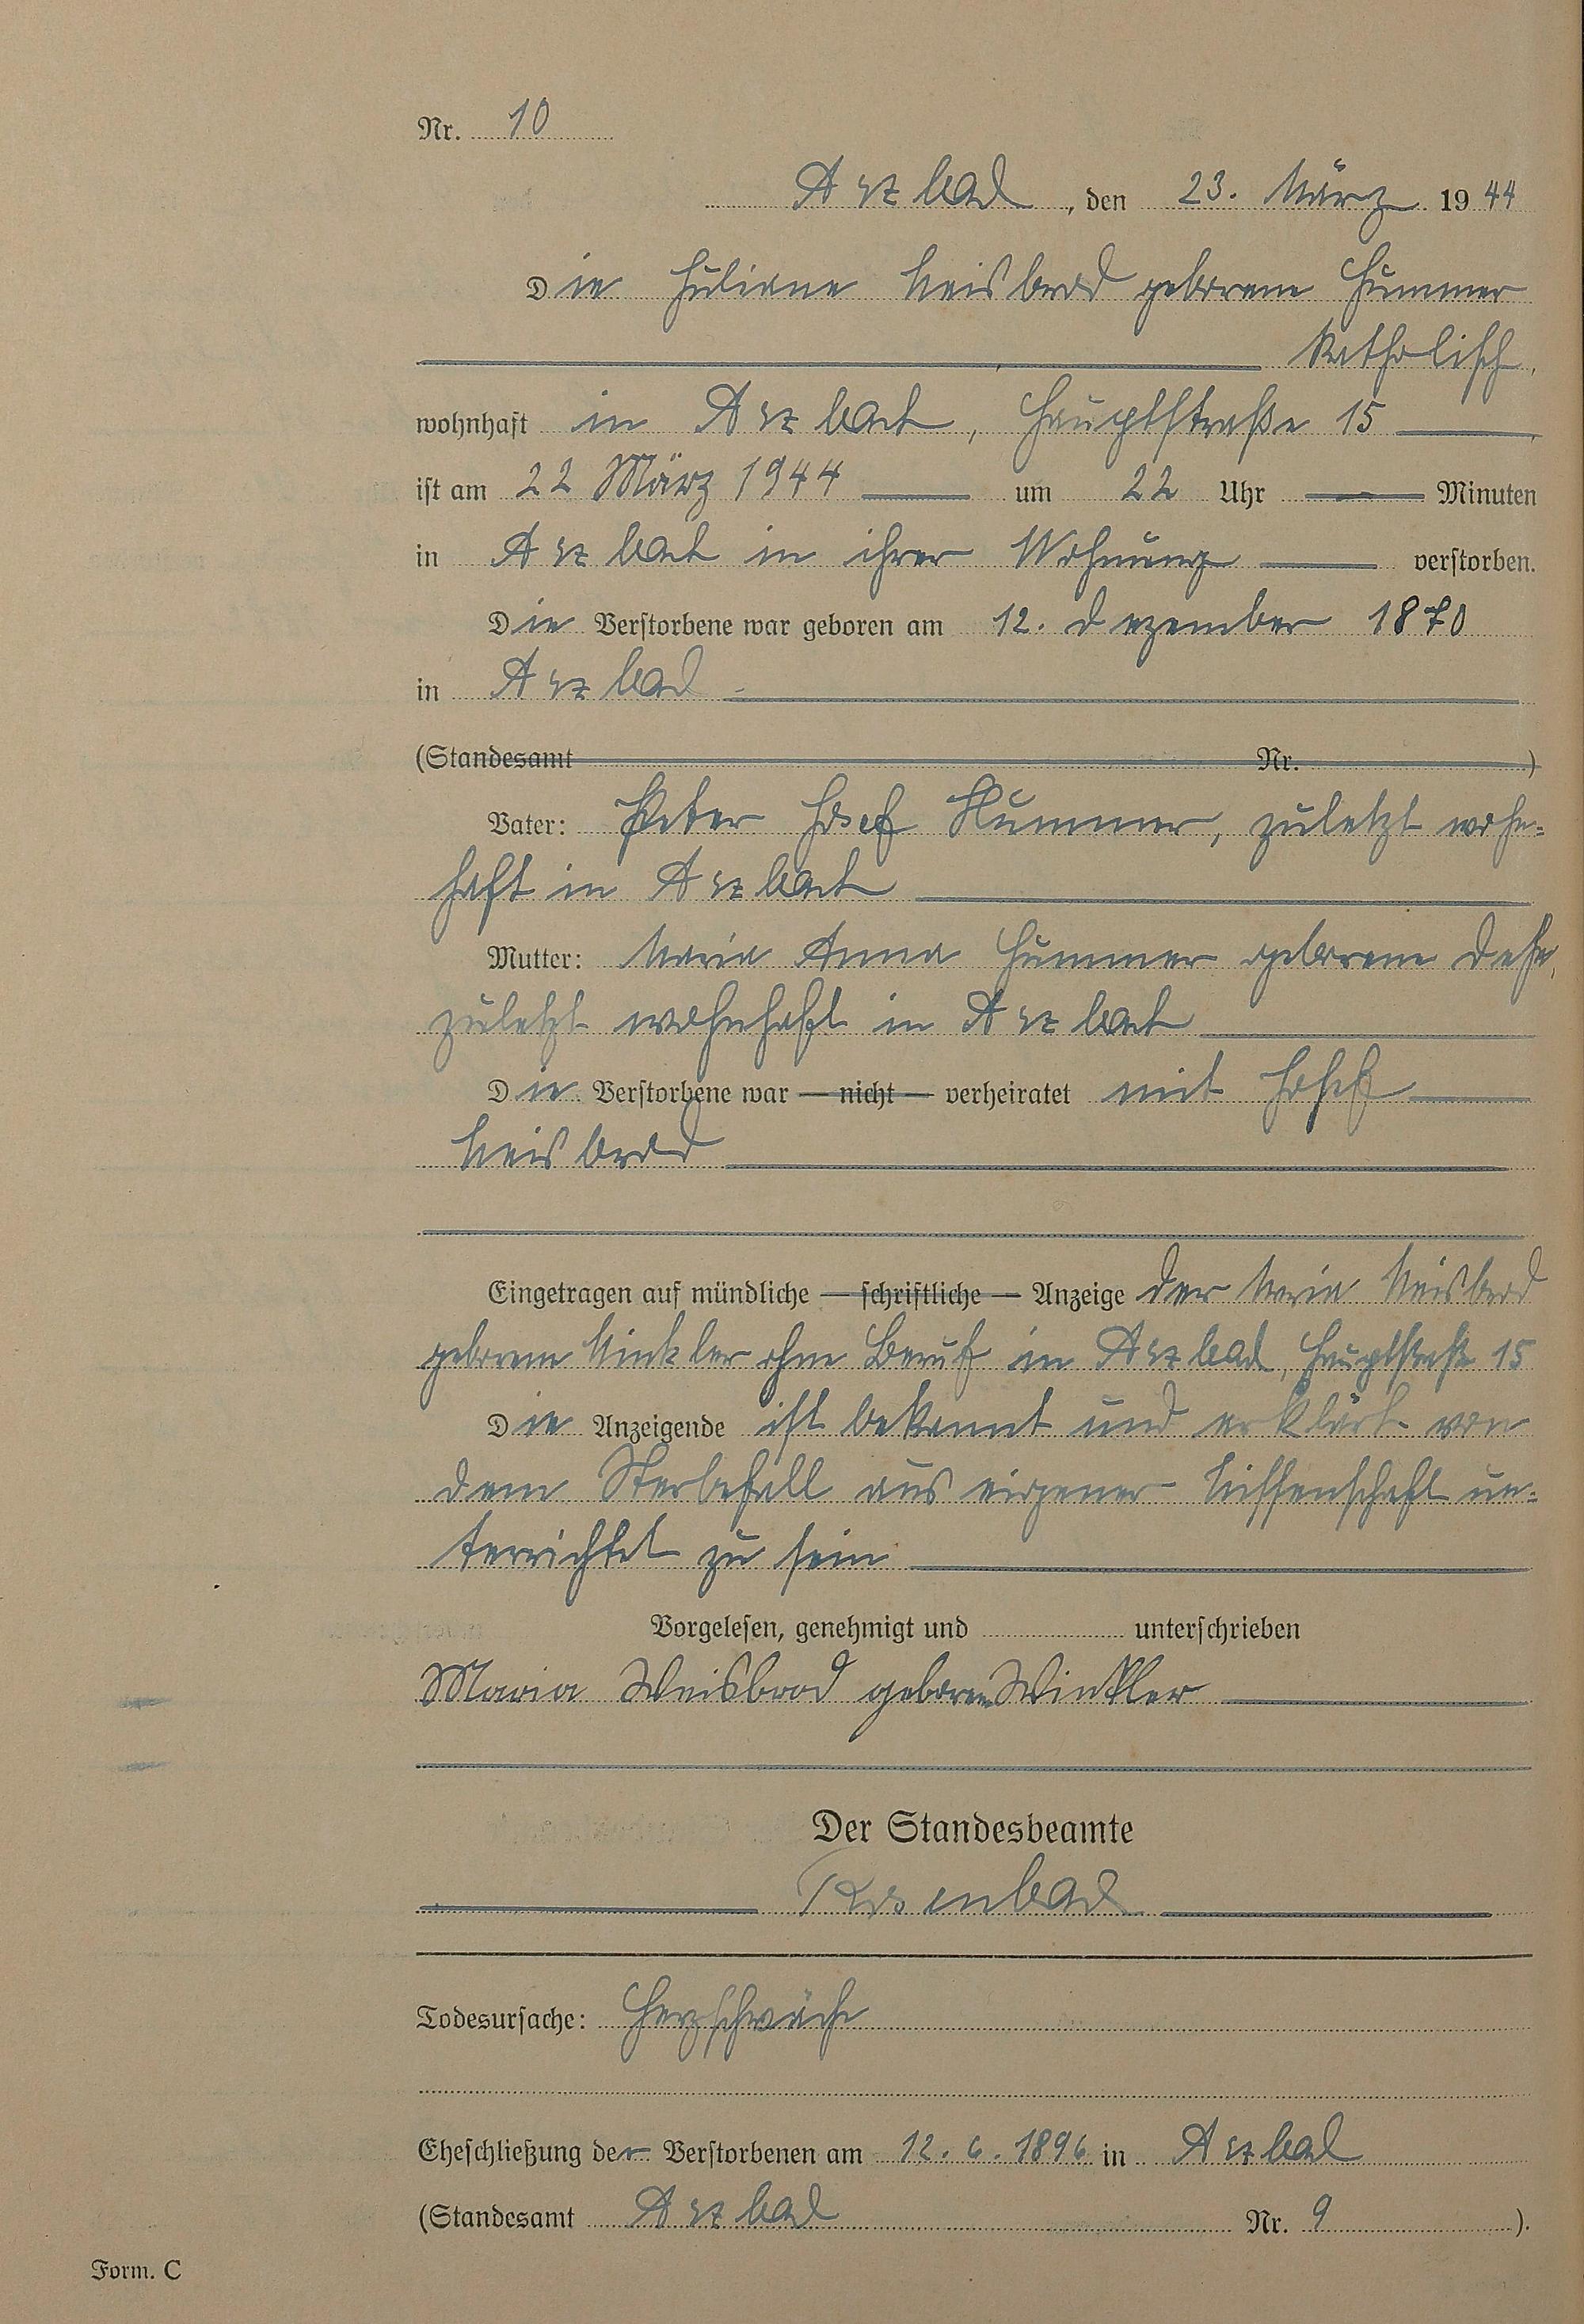 Nr. 10
Arzbach, den 23. März 1944
Die Juliane Weisbrod geborene Hummer
katholisch,
wohnhaft in Arzbach, Hauptstraße 15
ist am 22 März 1944 um 22 Uhr Minuten
in Arzbach in ihrer Wohnung verstorben.
Die Verstorbene war geboren am 12. Dezember 1870
in Arzbach
(Standesamt Nr. )
Vater: Peter Josef Hummer, zuletzt wohn-
haft in Arzbach
Mutter: Maria Anna Hummer geborene Dehe,
zuletzt wohnhaft in Arzbach
Die Verstorbene war — nicht — verheiratet mit Josef
Weisbrod
Eingetragen auf mündliche — schriftliche — Anzeige der Maria Weisbrod
geborene Winkler ohne Beruf in Arzbach, Hauptstraße 15
Die Anzeigende ist bekannt und erklärt von
dem Sterbefall aus eigener Wissenschaft un-
terrichtet zu sein
Vorgelesen, genehmigt und unterschrieben
Maria Weisbrod geborene Winkler
Der Standesbeamte
Rosenbach
Todesursache: Herzschwäche
Eheschließung der Verstorbenen am 12. 6. 1896 in Arzbach
(Standesamt Arzbach Nr. 9 ).
Form. C